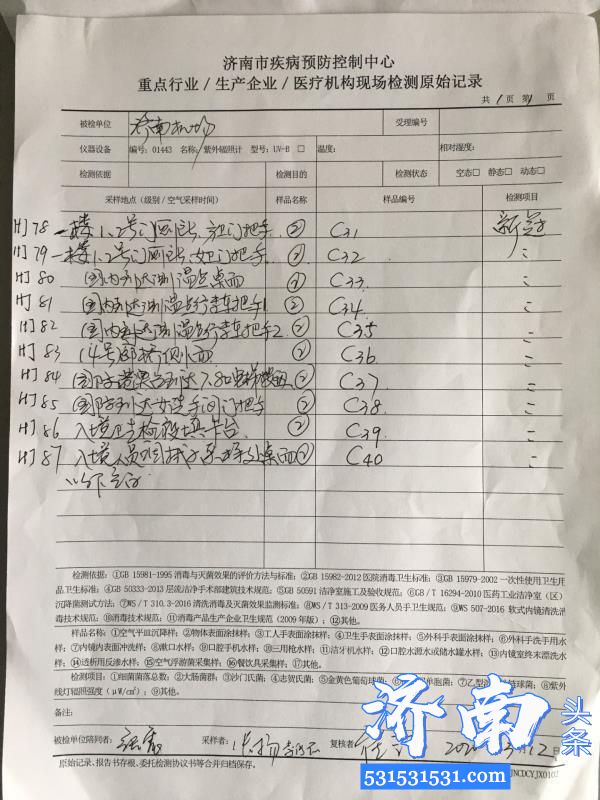 济南市疾病预防控制中心
重点行业/生产企业/医疗机构现场检测原始记录
共 1 页 第 1 页
被检单位 济南机场 受理编号
仪器设备 编号:01443 名称:紫外辐照计 型号:UV-B □ 温度: 相对湿度:
检测依据 检测目的 检测状态 空态□ 静态□ 动态□
采样地点(级别/空气采样时间) 样品名称 样品编号 检测项目
HJ78 一楼1、2号门厕所、门把手 ② C31 新冠
HJ79 一楼1、2号门厕所、女门把手 ② C32 〃
HJ80 国内到达测温点桌面 ② C33 〃
HJ81 国内到达测温点行李车把手1 ② C34 〃
HJ82 国内到达测温点行李车把手2 ② C35 〃
HJ83 14号廊桥侧面 ② C36 〃
HJ84 国际 到达 ② C37 〃
HJ85 国际到达女洗手间门把手 ② C38 〃
HJ86 入境卫生检疫填卡台 ② C39 〃
HJ87 入境人员 桌面 ② C40 〃
以下空白
检测依据:①GB 15981-1995 消毒与灭菌效果的评价方法与标准;②GB 15982-2012 医院消毒卫生标准;③GB 15979-2002 一次性使用卫生用
品卫生标准;④GB 50333-2013 层流洁净手术部建筑技术规范;⑤GB 50591 洁净室施工及验收规范;⑥GB/T 16294-2010 医药工业洁净室(区)
沉降菌测试方法;⑦WS/T 310.3-2016 清洗消毒及灭菌效果监测标准;⑧WS/T 313-2009 医务人员手卫生规范;⑨WS 507-2016 软式内镜清洗消
毒技术规范;⑩消毒技术规范;⑪消毒产品生产企业卫生规范(2009 年版);⑫其他。
样品名称:①空气平皿沉降样;②物体表面涂抹样;③工人手表面涂抹样;④卫生手表面涂抹样;⑤外科手表面涂抹样;⑥外科手洗手用水
样;⑦内镜内表面冲洗样;⑧漱口水样;⑨口腔手机水样;⑩三用枪水样;⑪洁牙机水样;⑫口腔水源水或储水罐水样;⑬内镜室终末漂洗水
样;⑭透析用反渗水样;⑮空气浮游菌采集样;⑯餐饮具采集样;⑰其他。
检测项目:①细菌菌落总数;②大肠菌群;③沙门氏菌;④志贺氏菌;⑤金黄色葡萄球菌;⑦乙型溶血性链球菌;⑧紫外
线灯辐照强度(μW/cm²);⑨其他。
备注:
被检单位陪同者: 采样者: 复核者: 3月12日
原始记录、报告书存根、委托检测协议书等合并归档保存。 JNCDCYJX0102
济南头条
531531531.com